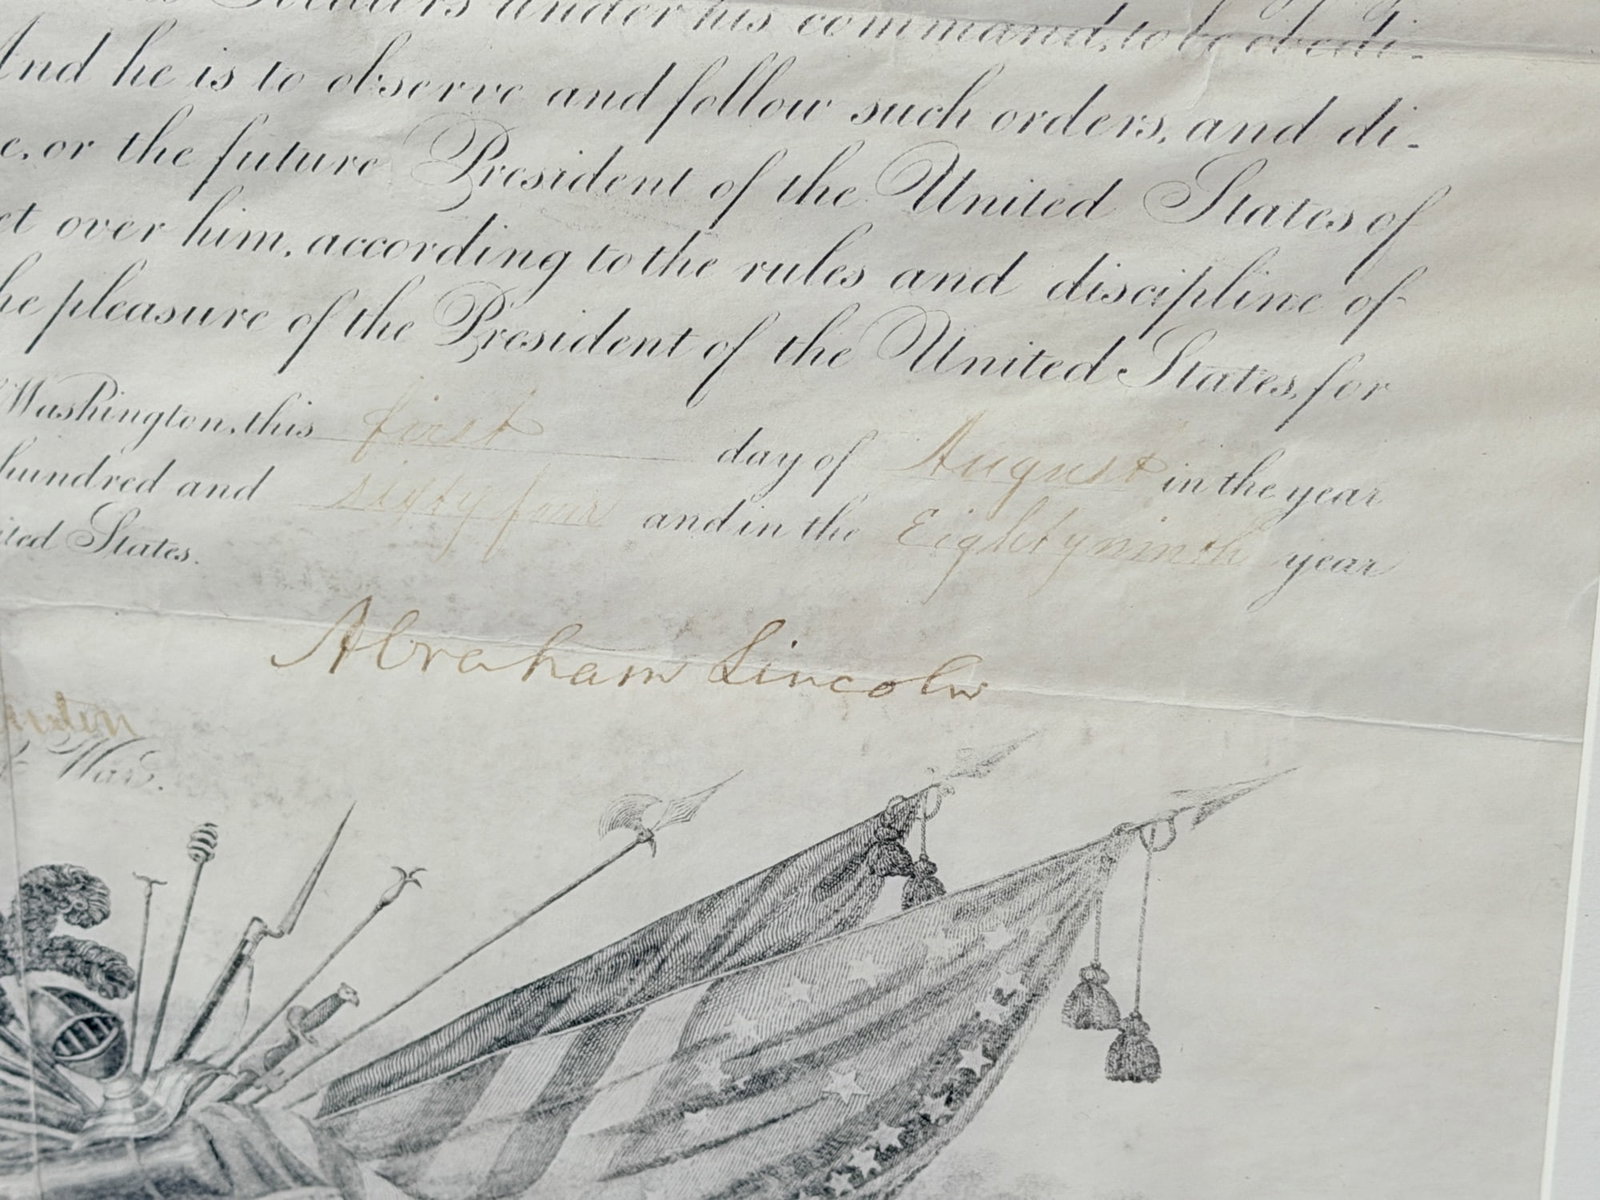 Soldiers under his command, to be obedi-
And he is to observe and follow such orders, and di-
e, or the future President of the United States of
et over him, according to the rules and discipline of
he pleasure of the President of the United States, for
Washington, this first day of August in the year
hundred and sixty four and in the Eighty ninth year
ited States.
Abraham Lincoln
War.